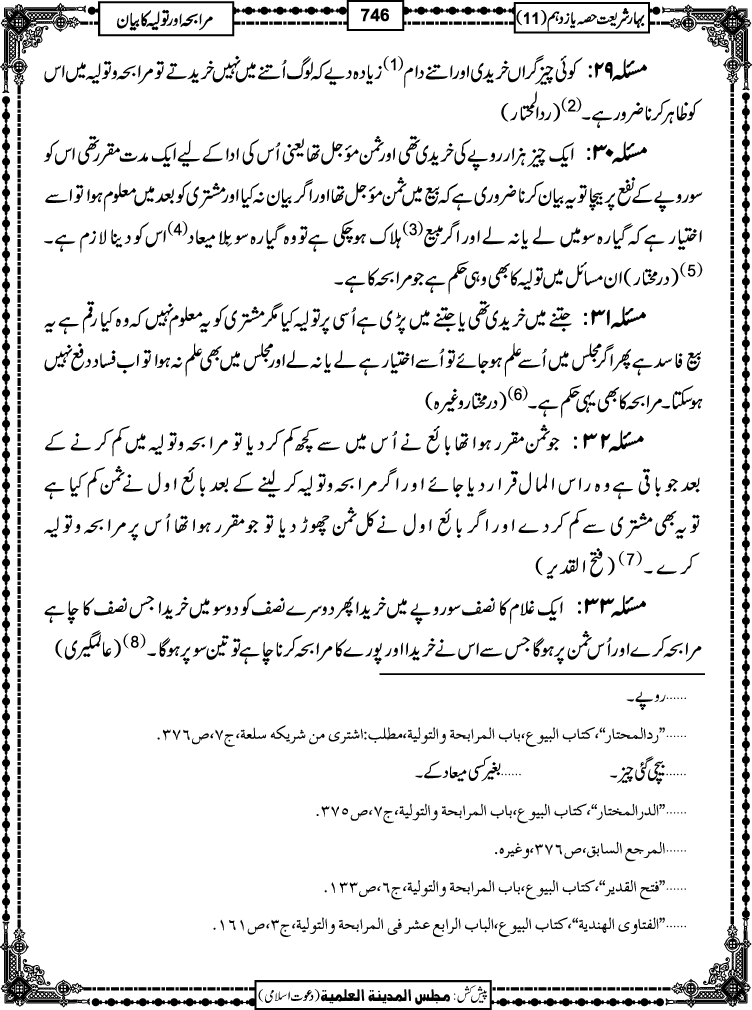 بہار شریعت حصہ یازدہم (11)
746
مرابحہ اور تولیہ کا بیان
مسئلہ ۲۹: کوئی چیز گراں خریدی اور اتنے دام (1) زیادہ دیے کہ لوگ اُتنے میں نہیں خریدتے تو مرابحہ و تولیہ میں اس
کو ظاہر کرنا ضرور ہے۔ (2) (ردالمحتار)
مسئلہ ۳۰: ایک چیز ہزار روپے کی خریدی تھی اور ثمن مؤجل تھا یعنی اُس کی ادا کے لیے ایک مدت مقرر تھی اس کو
سو روپے کے نفع پر بیچا تو یہ بیان کرنا ضروری ہے کہ بیع میں ثمن مؤجل تھا اور اگر بیان نہ کیا اور مشتری کو بعد میں معلوم ہوا تو اسے
اختیار ہے کہ گیارہ سو میں لے یا نہ لے اور اگر مبیع (3) ہلاک ہوچکی ہے تو وہ گیارہ سو بِلا میعاد (4) اس کو دینا لازم ہے۔
(5) (درمختار) ان مسائل میں تولیہ کا بھی وہی حکم ہے جو مرابحہ کا ہے۔
مسئلہ ۳۱: جتنے میں خریدی تھی یا جتنے میں پڑی ہے اُسی پر تولیہ کیا مگر مشتری کو یہ معلوم نہیں کہ وہ کیا رقم ہے یہ
بیع فاسد ہے پھر اگر مجلس میں اُسے علم ہوجائے تو اُسے اختیار ہے لے یا نہ لے اور مجلس میں بھی علم نہ ہوا تو اب فساد دفع نہیں
ہوسکتا۔ مرابحہ کا بھی یہی حکم ہے۔ (6) (درمختار وغیرہ)
مسئلہ ۳۲: جو ثمن مقرر ہوا تھا بائع نے اُس میں سے کچھ کم کر دیا تو مرابحہ و تولیہ میں کم کرنے کے
بعد جو باقی ہے وہ راس المال قرار دیا جائے اور اگر مرابحہ و تولیہ کر لینے کے بعد بائع اول نے ثمن کم کیا ہے
تو یہ بھی مشتری سے کم کر دے اور اگر بائع اول نے کل ثمن چھوڑ دیا تو جو مقرر ہوا تھا اُس پر مرابحہ و تولیہ
کرے۔ (7) (فتح القدیر)
مسئلہ ۳۳: ایک غلام کا نصف سو روپے میں خریدا پھر دوسرے نصف کو دو سو میں خریدا جس نصف کا چاہے
مرابحہ کرے اور اُس ثمن پر ہوگا جس سے اس نے خریدا اور پورے کا مرابحہ کرنا چاہے تو تین سو پر ہوگا۔ (8) (عالمگیری)
......روپے۔
......”ردالمحتار“، کتاب البیوع، باب المرابحة والتولیة، مطلب: اشتری من شریکه سلعة، ج۷، ص۳۷۶.
......بیچی گئی چیز۔ ......بغیر کسی میعاد کے۔
......”الدرالمختار“، کتاب البیوع، باب المرابحة والتولیة، ج۷، ص۳۷۵.
......المرجع السابق، ص۳۷۶، وغیرہ.
......”فتح القدیر“، کتاب البیوع، باب المرابحة والتولیة، ج۶، ص۱۳۳.
......”الفتاوی الهندیة“، کتاب البیوع، الباب الرابع عشر فی المرابحة والتولیة، ج۳، ص۱۶۱.
پیش کش: مجلس المدینة العلمیة (دعوت اسلامی)